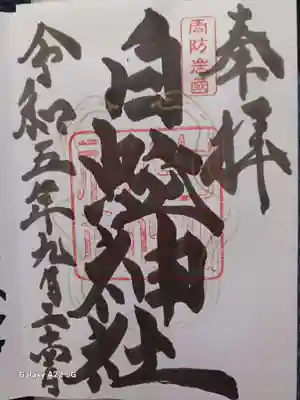 奉拝
周防岩國
白蛇神社
令和五年九月二十
Galaxy A22 5G